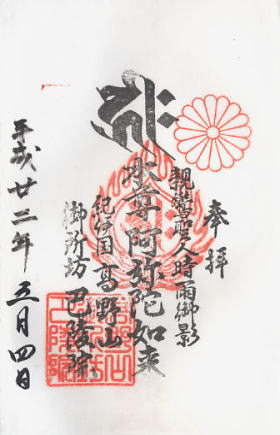 奉拝
親鸞聖人時雨御影
本尊阿弥陀如来
紀伊国高野山
御所坊 巴陵院
平成廿二年五月四日